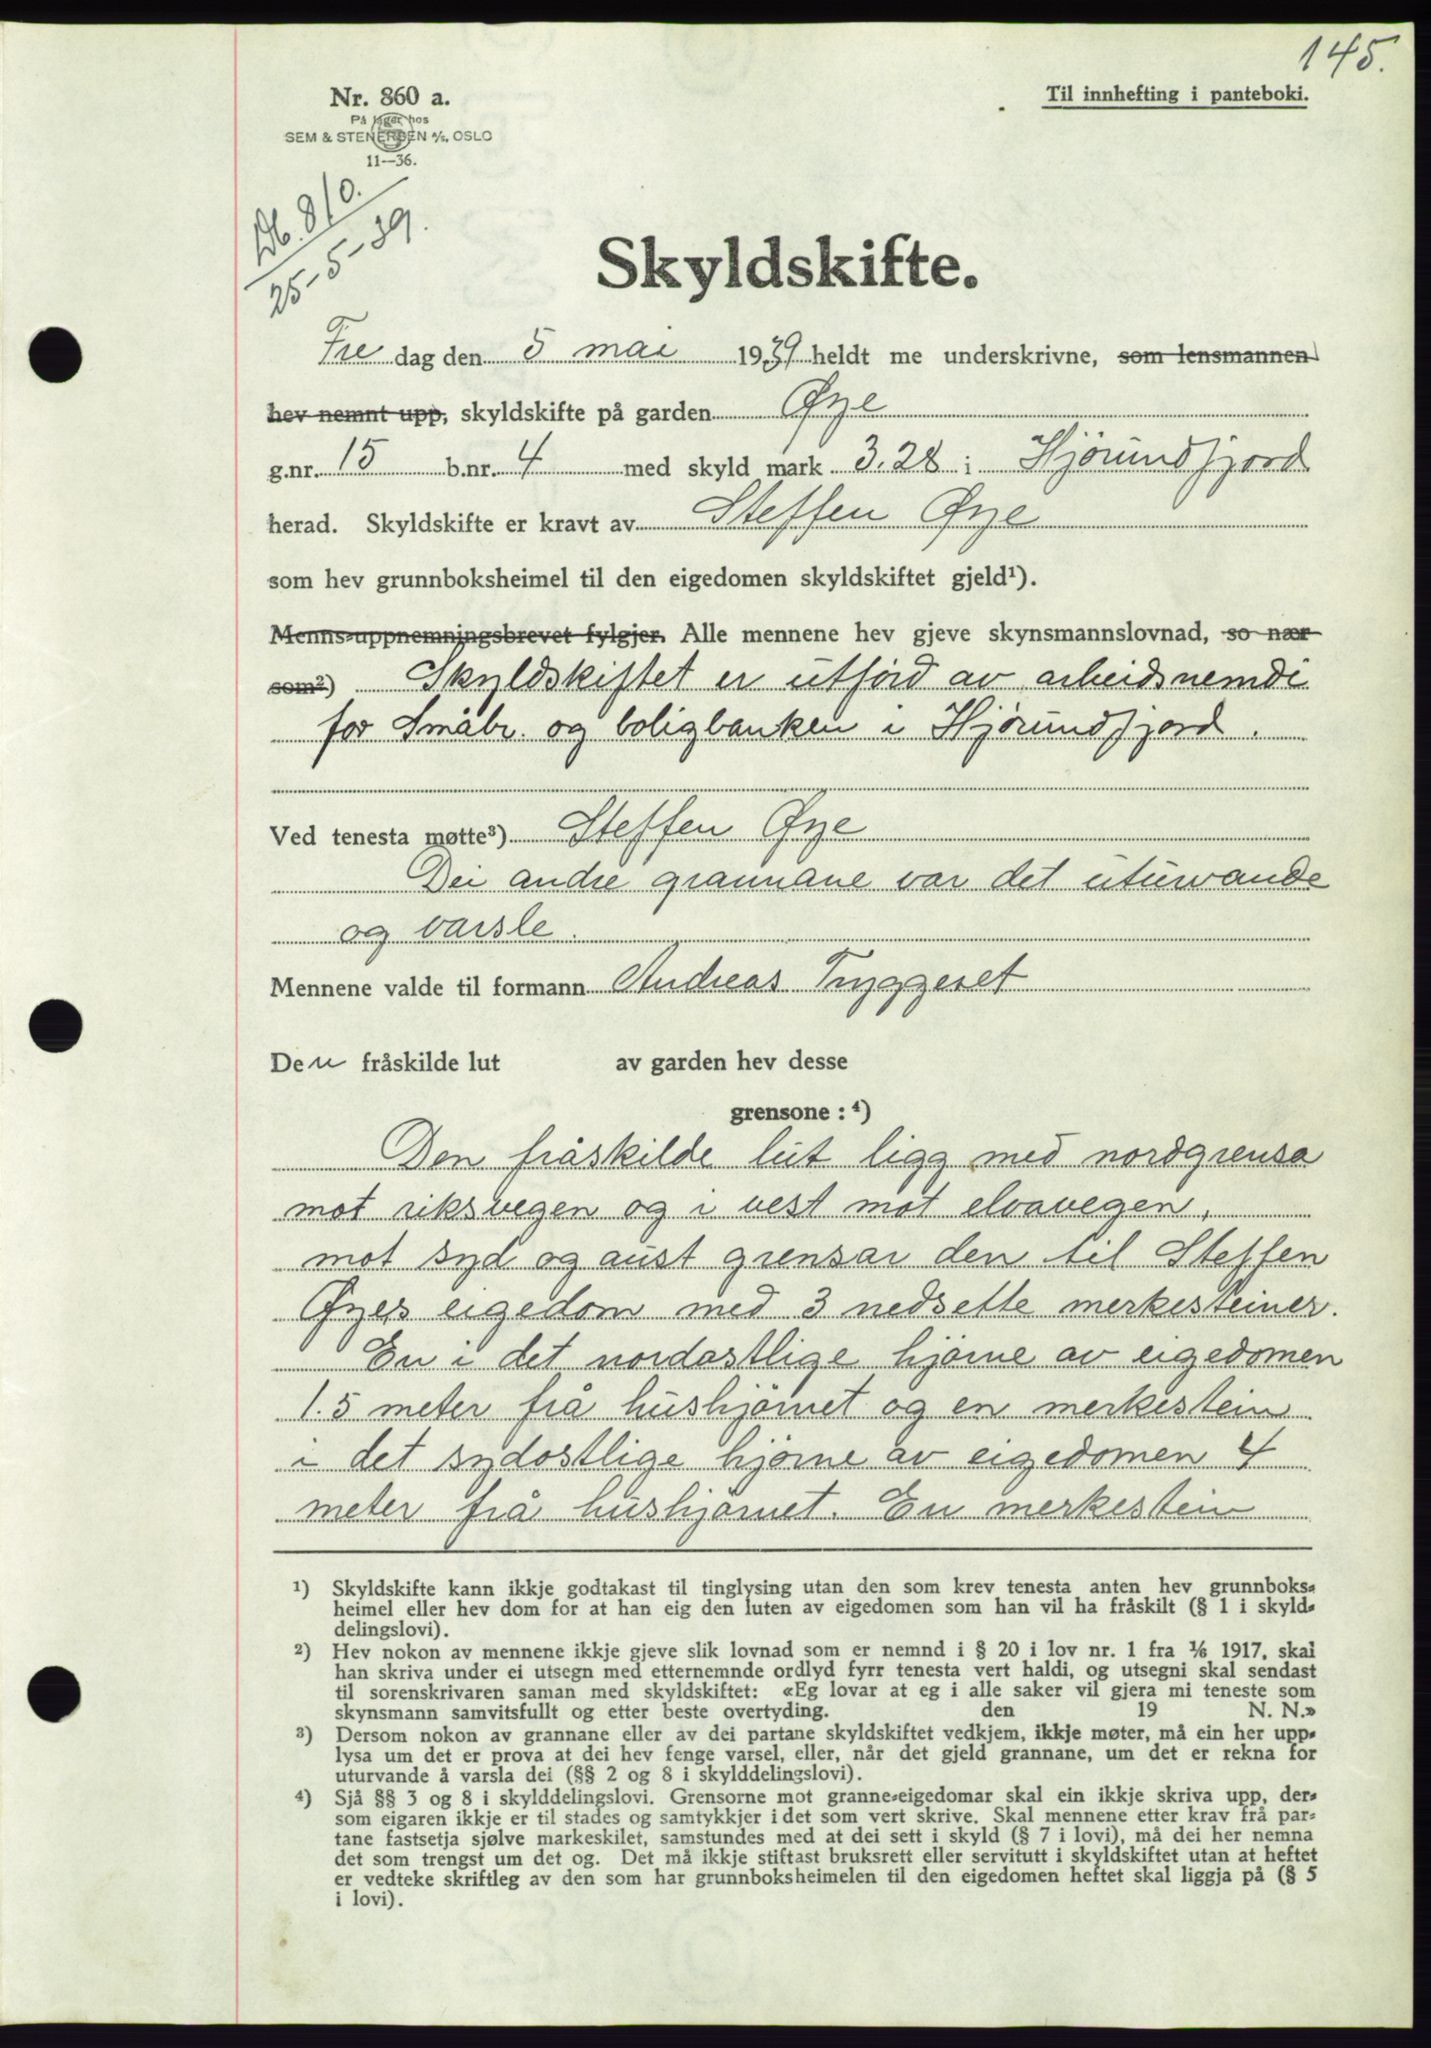 145.
Nr. 860 a.
På lager hos
SEM & STENERSEN A/S, OSLO
11—36.
Til innhefting i panteboki.
Db. 810.
25-5-39.
Skyldskifte.
Fre dag den 5 mai 1939 heldt me underskrivne, som lensmannen
hev nemnt upp, skyldskifte på garden Øye
g.nr. 15 b.nr. 4 med skyld mark 3.28 i Hjørundfjord
herad. Skyldskifte er kravt av Steffen Øye
som hev grunnboksheimel til den eigedomen skyldskiftet gjeld¹).
Menns-uppnemningsbrevet fylgjer. Alle mennene hev gjeve skynsmannslovnad, so nær
som²) Skyldskiftet er utførd av arbeidsnemdi
for Småbr. og boligbanken i Hjørundfjord.
Ved tenesta møtte³) Steffen Øye
Dei andre grannane var det uturvande
og varsle.
Mennene valde til formann Andreas Tryggeset
Den fråskilde lut av garden hev desse
grensone : ⁴)
Den fråskilde lut ligg med nordgrensa
mot riksvegen og i vest mot elvavegen,
mot syd og aust grensar den til Steffen
Øyes eigedom med 3 nedsette merkesteiner.
En i det nordostlige hjørne av eigedomen
1.5 meter frå hushjørnet og en merkestein
i det sydostlige hjørne av eigedomen 4
meter frå hushjørnet. En merkestein
¹) Skyldskifte kann ikkje godtakast til tinglysing utan den som krev tenesta anten hev grunnboks-
heimel eller hev dom for at han eig den luten av eigedomen som han vil ha fråskilt (§ 1 i skyld-
delingslovi).
²) Hev nokon av mennene ikkje gjeve slik lovnad som er nemnd i § 20 i lov nr. 1 fra 1/6 1917, skal
han skriva under ei utsegn med etternemnde ordlyd fyrr tenesta vert haldi, og utsegni skal sendast
til sorenskrivaren saman med skyldskiftet: «Eg lovar at eg i alle saker vil gjera mi teneste som
skynsmann samvitsfullt og etter beste overtyding. den 19 N. N.»
³) Dersom nokon av grannane eller av dei partane skyldskiftet vedkjem, ikkje møter, må ein her upp-
lysa um det er prova at dei hev fenge varsel, eller, når det gjeld grannane, um det er rekna for
uturvande å varsla dei (§§ 2 og 8 i skylddelingslovi).
⁴) Sjå §§ 3 og 8 i skylddelingslovi. Grensorne mot granne-eigedomar skal ein ikkje skriva upp, der-
som eigaren ikkje er til stades og samtykkjer i det som vert skrive. Skal mennene etter krav frå par-
tane fastsetja sjølve markeskilet, samstundes med at dei sett i skyld (§ 7 i lovi), må dei her nemna
det som trengst um det og. Det må ikkje stiftast bruksrett eller servitutt i skyldskiftet utan at heftet
er vedteke skriftleg av den som har grunnboksheimelen til den eigedomen heftet skal liggja på (§ 5
i lovi).